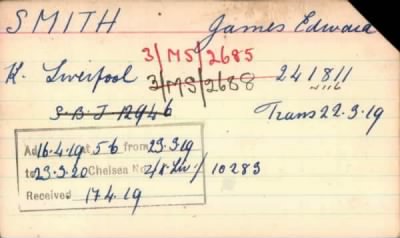 SMITH James Edward
3/MS/2685
K. Liverpool 3/MS/2688 241811
S.B.J 12946 Trans 22.3.19
Ad 16.4.19 at 5/6 from 23.3.19
to 23.3.20 Chelsea No 2/8.Liv/10283
Received 17.4.19